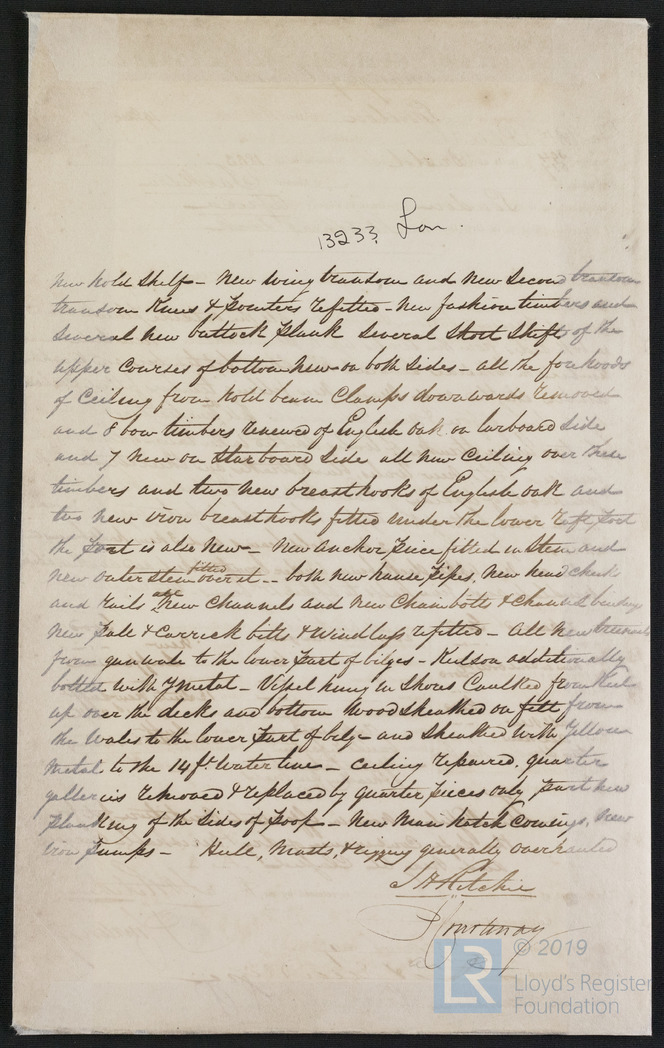 13233 Lon.
New hold shelf - New wing transom and New Second transom
transom Knees & pointers refitted - New fashion timbers and
Several new buttock plank Several Short Shifts of the
upper Courses of bottom New on both Sides - all the fore hoods
of Ceiling from hold beam Clamps downwards removed
and 8 bow timbers renewed of English oak on larboard Side
and 7 New on Starboard Side all New Ceiling over these
timbers and two New breasthooks of English oak and
two new iron breasthooks fitted under the lower
the port is also New - New anchor piece fitted in Stem and
New outer Stem fitted over it - both new hause pipes, New head cheeks
and rails all New Channels and New Chain bolts & channel
New pall & Carrick bitts & Windlass refitted - All New treenails
from gunwale to the lower part of bilges - Kelson additionally
bolted with Y metal - Vessel hung in Shores Caulked from Keel
up over the decks and bottom Wood Sheathed on felt from
the Wales to the lower part of bilge and Sheathed with Yellow
Metal to the 14 ft. Water line - Ceiling repaired, quarter
galleries removed & replaced by quarter pieces only, part new
planking of the Sides of Poop - New Main hatch Comings, New
Iron pumps - Hull, Masts, & rigging generally overhauled
J H Ritchie
Courtenay
LR © 2019
Lloyd's Register
Foundation